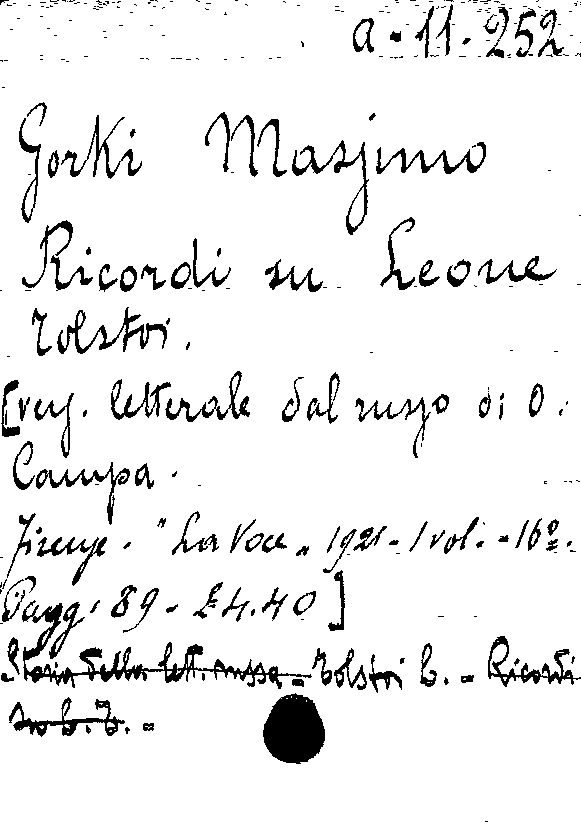 a - 11 - 252
Gorki Massimo
Ricordi su Leone
Tolstoi.
[vers. letterale dal russo di O.
Campa.
Firenze. "La Voce" 1921 - 1 vol. - 16º.
Pagg. 89 - £ 4.40]
Storia della lett. russa - Tolstoi L. - Ricordi
su L. T. -